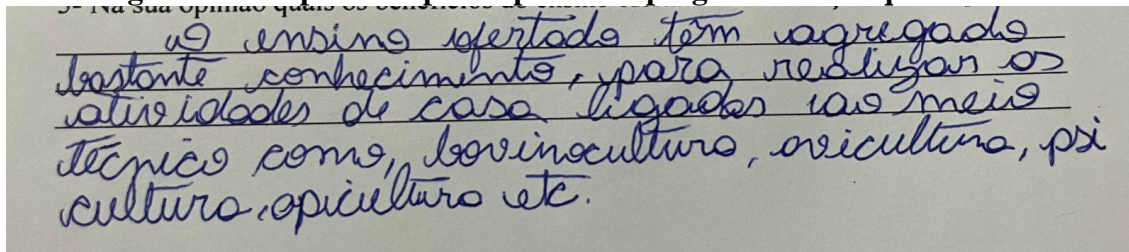 3- Na sua opinião quais os benefícios
O ensino ofertado têm agregado
bastante conhecimento, para realizar os
atividades de casa ligadas ao meio
técnico como, bovinocultura, avicultura, psi
cultura, apicultura etc.